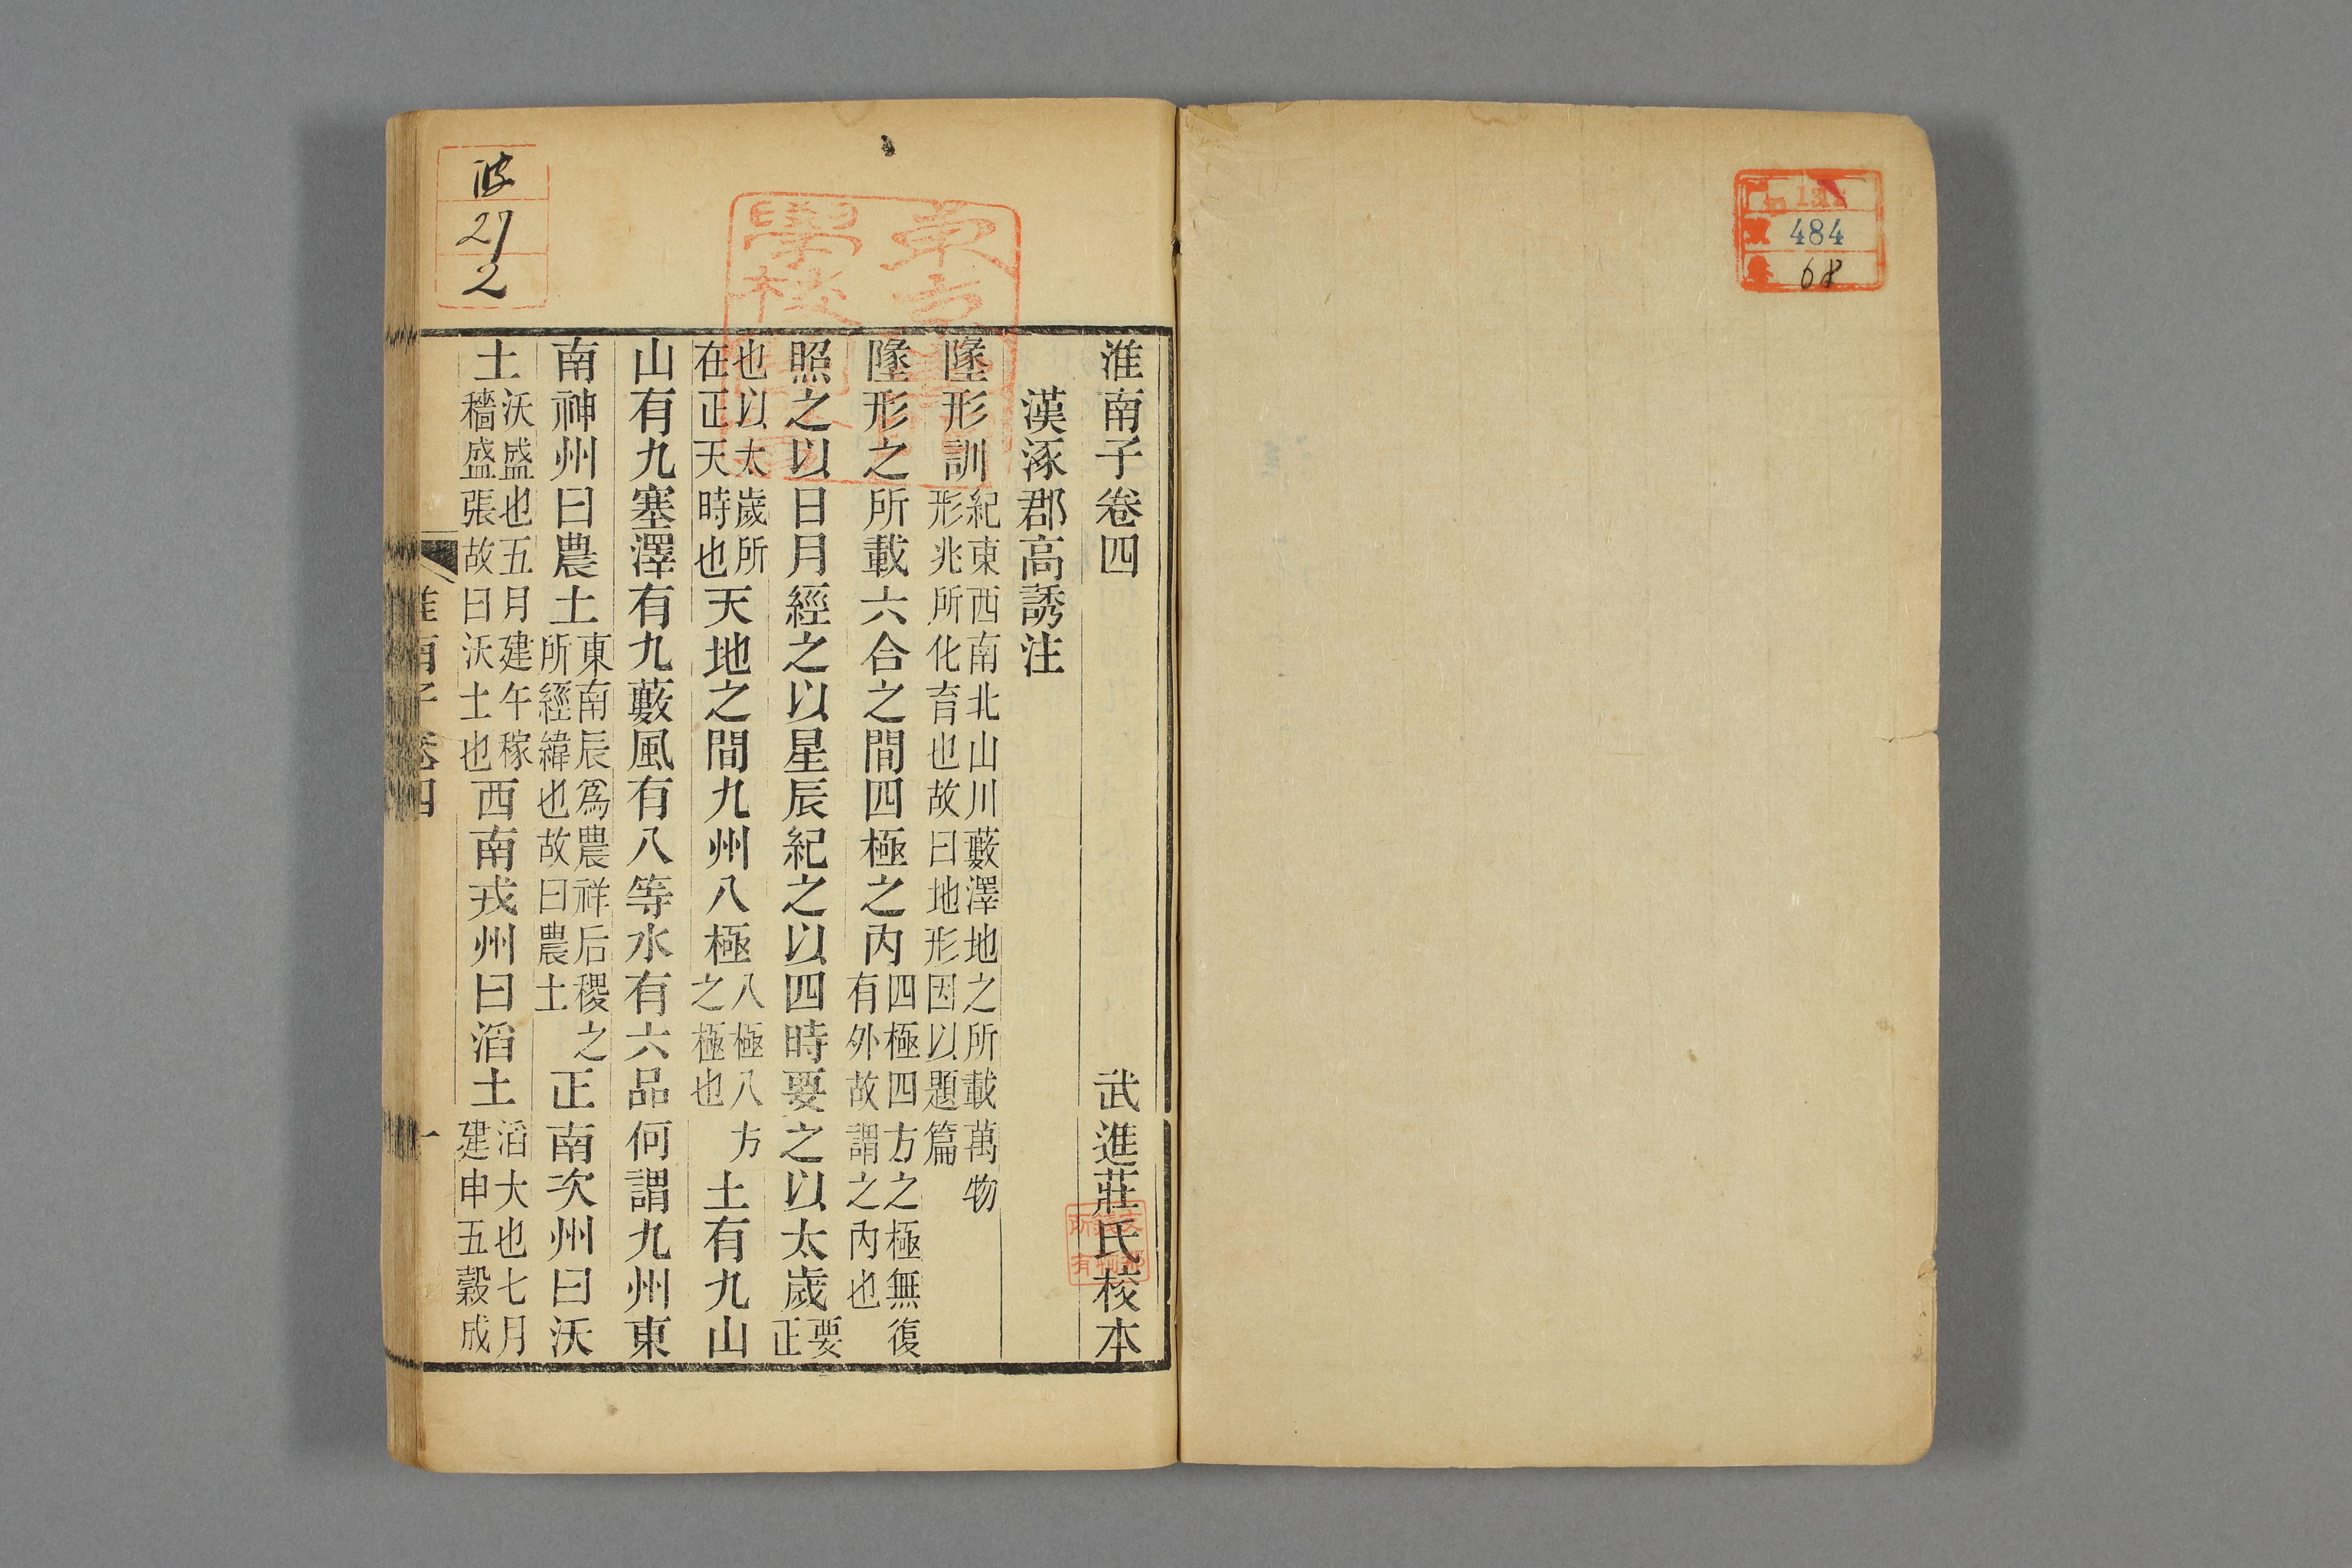 484
68
淮南子卷四 武進莊氏校本
漢涿郡高誘注
墬形訓紀東西南北山川藪澤地之所載萬物形兆所化育也故曰地形因以題篇
墬形之所載六合之間四極之內四極四方之極無復有外故謂之內也
照之以日月經之以星辰紀之以四時要之以太歲要正
也以太歲所在正天時也天地之間九州八極八極八方之極也土有九山
山有九塞澤有九藪風有八等水有六品何謂九州東
南神州曰農土東南辰爲農祥后稷之所經緯也故曰農土正南次州曰沃
土沃盛也五月建午稼穡盛張故曰沃土也西南戎州曰滔土滔大也七月建申五穀成
淮南子卷四
一
27
2